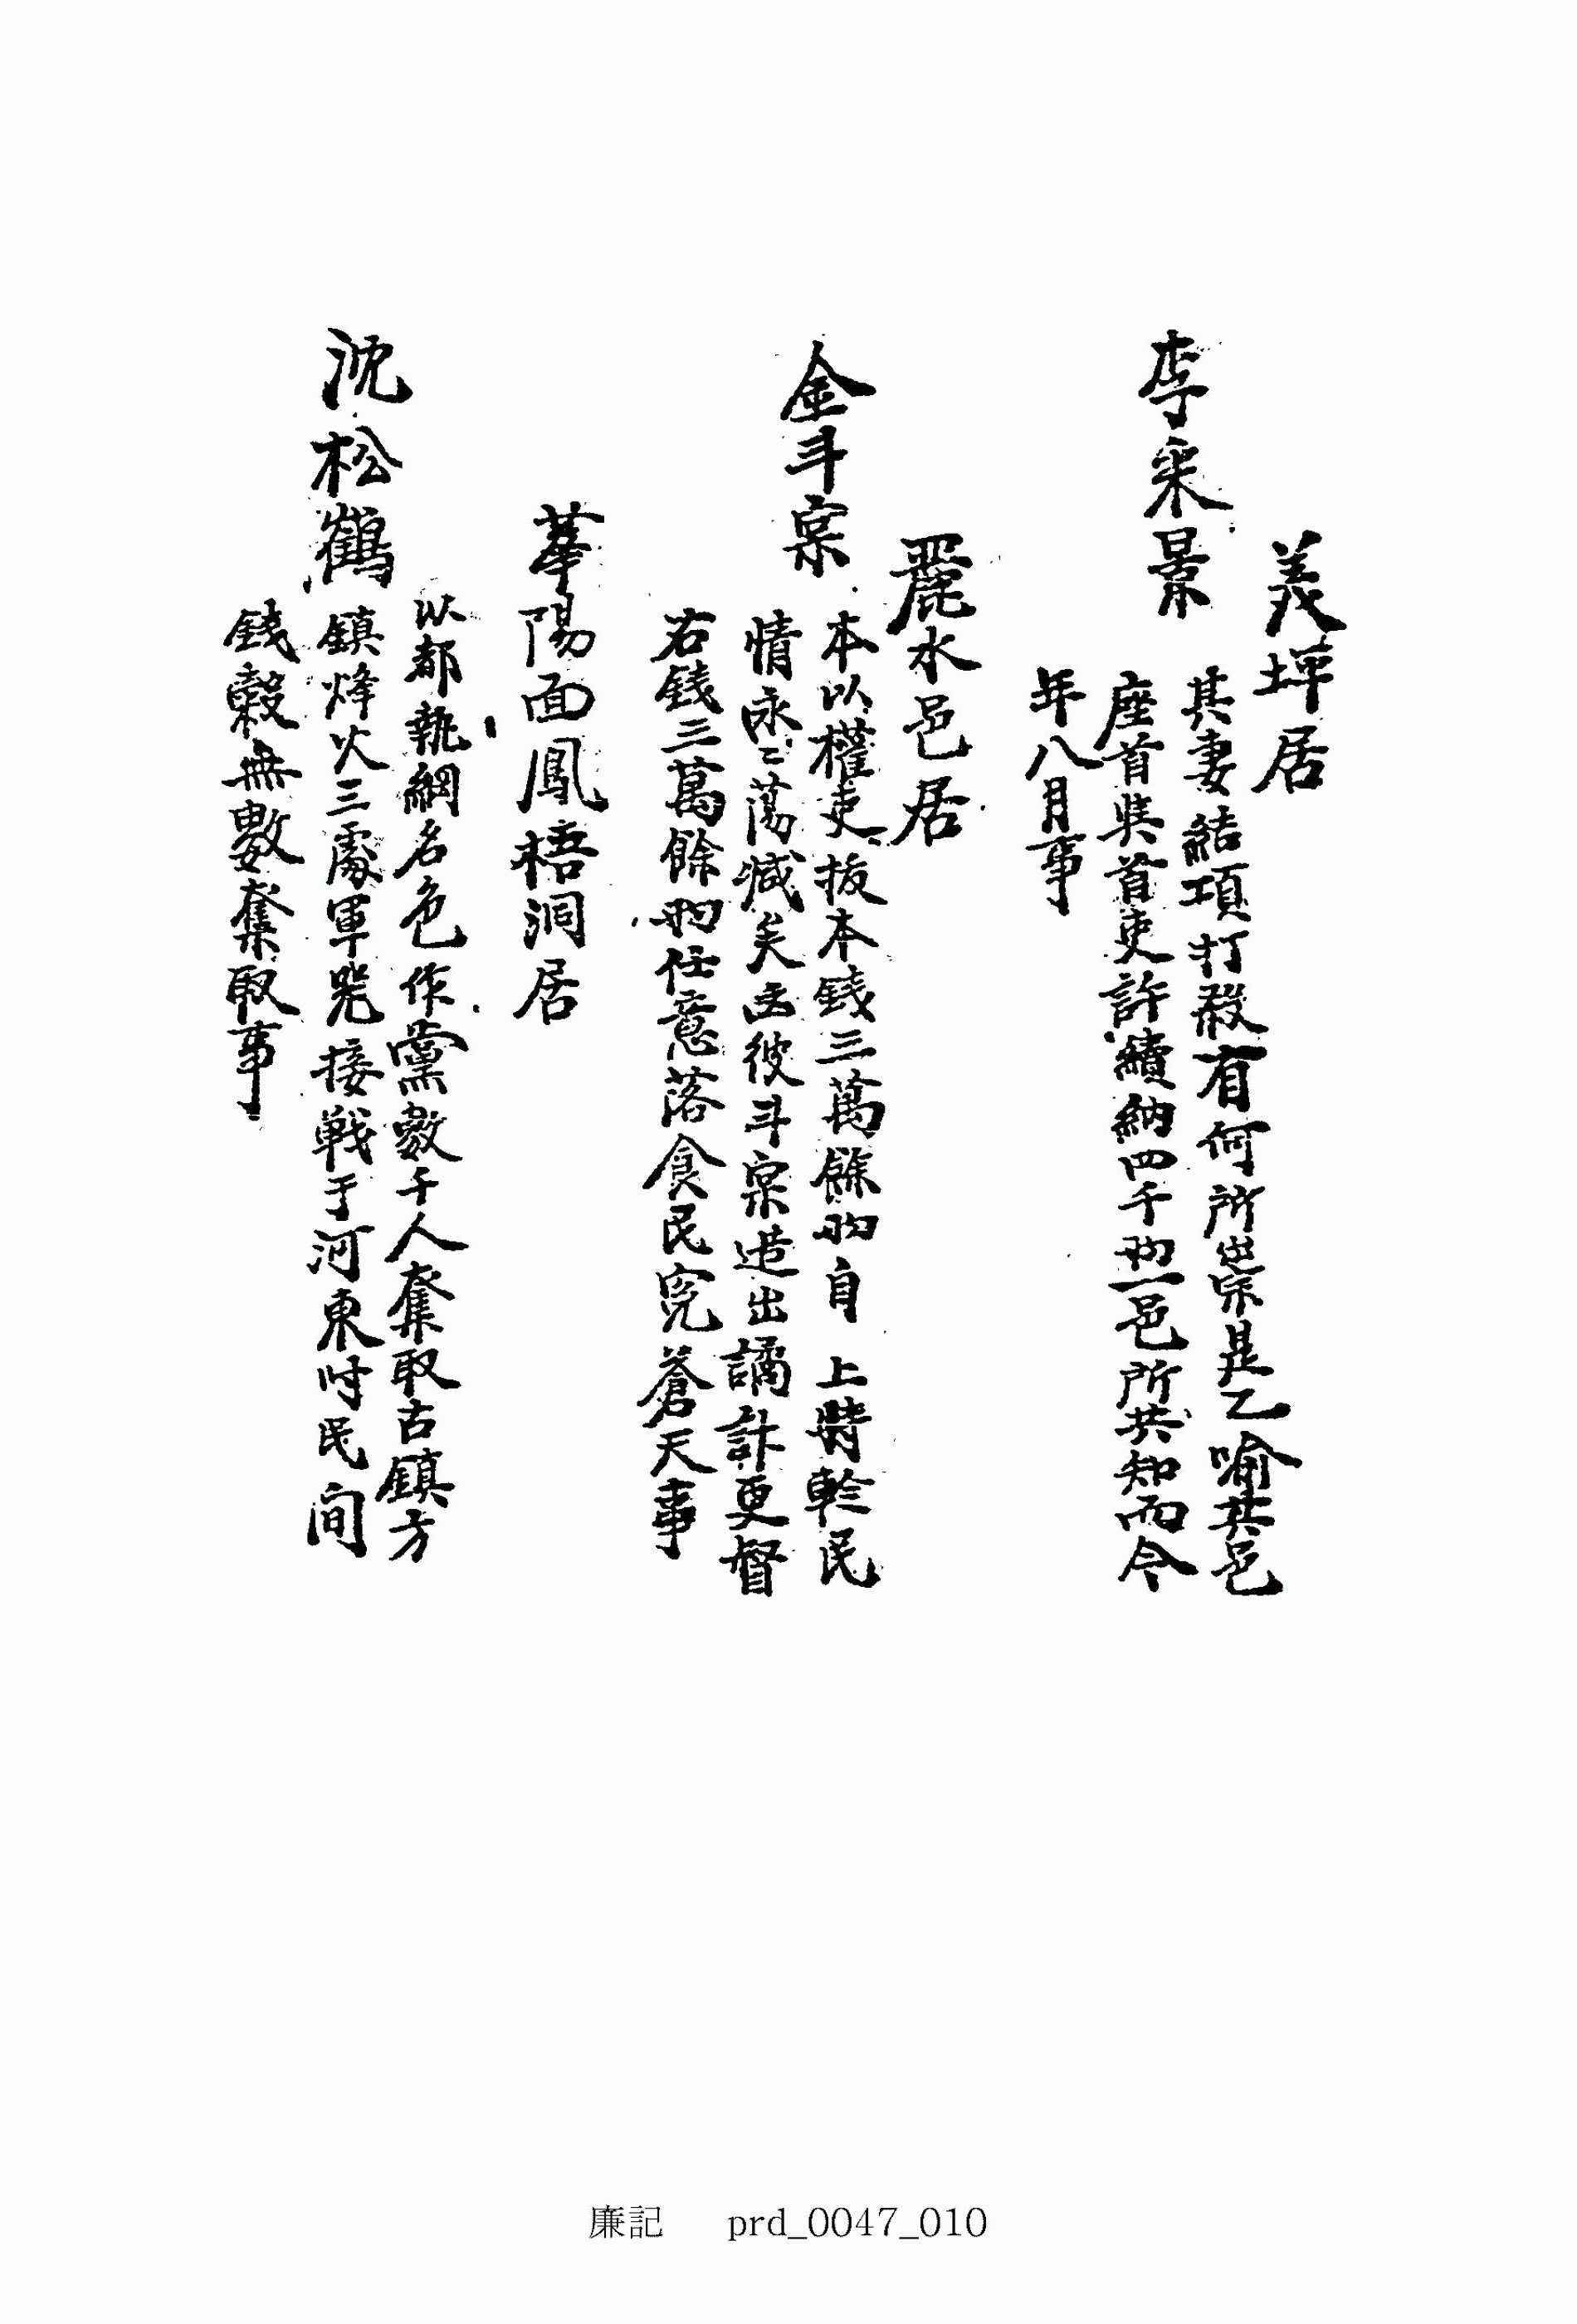 義坪居
李采景
其妻結項打殺有何所崇是乙喩其邑
座首與首吏許續納四千兩一邑所共知而今
年八月事
麗水邑居
金斗宗
本以權吏抜本錢三萬餘兩自 上特軫民
情永永蕩减矣彼斗宗造出譎計更督
右錢三萬餘兩任意落食民寃蒼天事
華陽面鳳梧洞居
沈松鶴
以都執綱名色作黨數千人奪取古鎮方
鎮烽火三處軍器接戰于河東時民间
錢穀無數奪取事
廉記 prd_0047_010